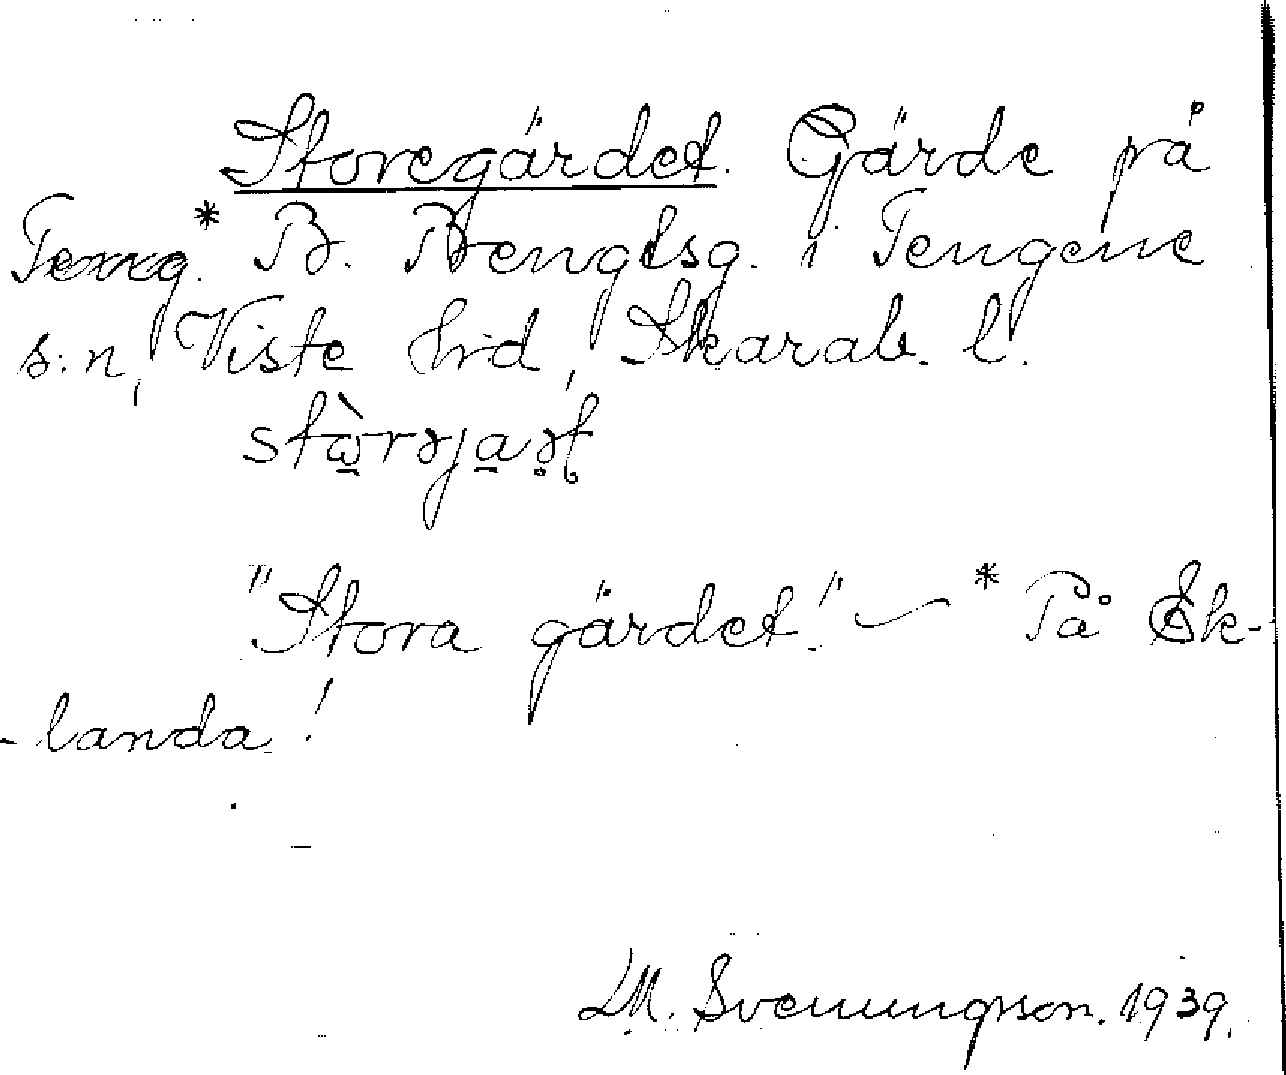 Storegärdet. Gärde på
* B. Bengtsg. i Tengene
s:n, Viste hrd, Skarab. l.
"Stora gärdet." — * På Ek-
-landa!
M. Svenungson. 1939.